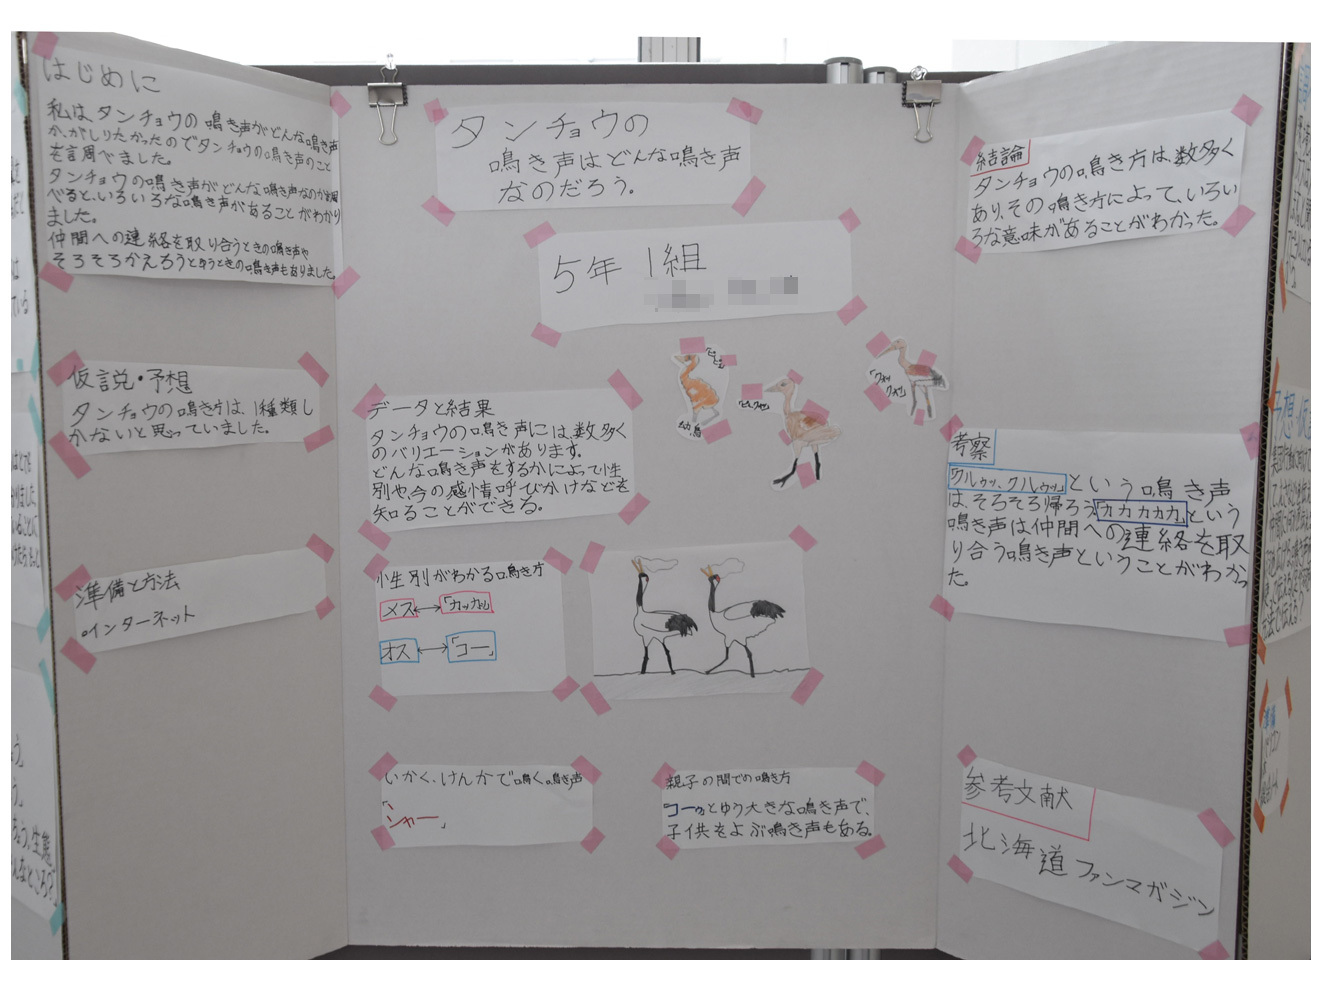 はじめに
私はタンチョウの鳴き声がどんな鳴き声
か、がしりたかったのでタンチョウの鳴き声のこと
を調べました。
タンチョウの鳴き声がどんな鳴き声なのかを調
べると、いろいろな鳴き声があることがわかり
ました。
仲間への連絡を取り合うときの鳴き声や
そろそろかえろうとゆうときの鳴き声もありました。
仮説・予想
タンチョウの鳴き方は、1種類し
かないと思っていました。
準備と方法
・インターネット
タンチョウの
鳴き声はどんな鳴き声
なのだろう。
5年1組
データと結果
タンチョウの鳴き声には、数多く
のバリエーションがあります。
どんな鳴き声をするかによって性
別や、今の感情、呼びかけなどを
知ることができる。
幼鳥
性別がわかる鳴き方
メス↔「カッカッ」
オス↔「コー」
いかく、けんかで鳴く鳴き声
「シャー」
親子の間での鳴き方
コーッとゆう大きな鳴き声で、
子供をよぶ鳴き声もある。
結論
タンチョウの鳴き方は、数多く
あり、その鳴き方によって、いろい
ろな意味があることがわかった。
考察
「クルゥッ、クルゥッ」という鳴き声
は、そろそろ帰ろう「カカカカカ」という
鳴き声は仲間への連絡を取
り合う鳴き声ということがわかっ
た。
参考文献
北海道ファンマガジン